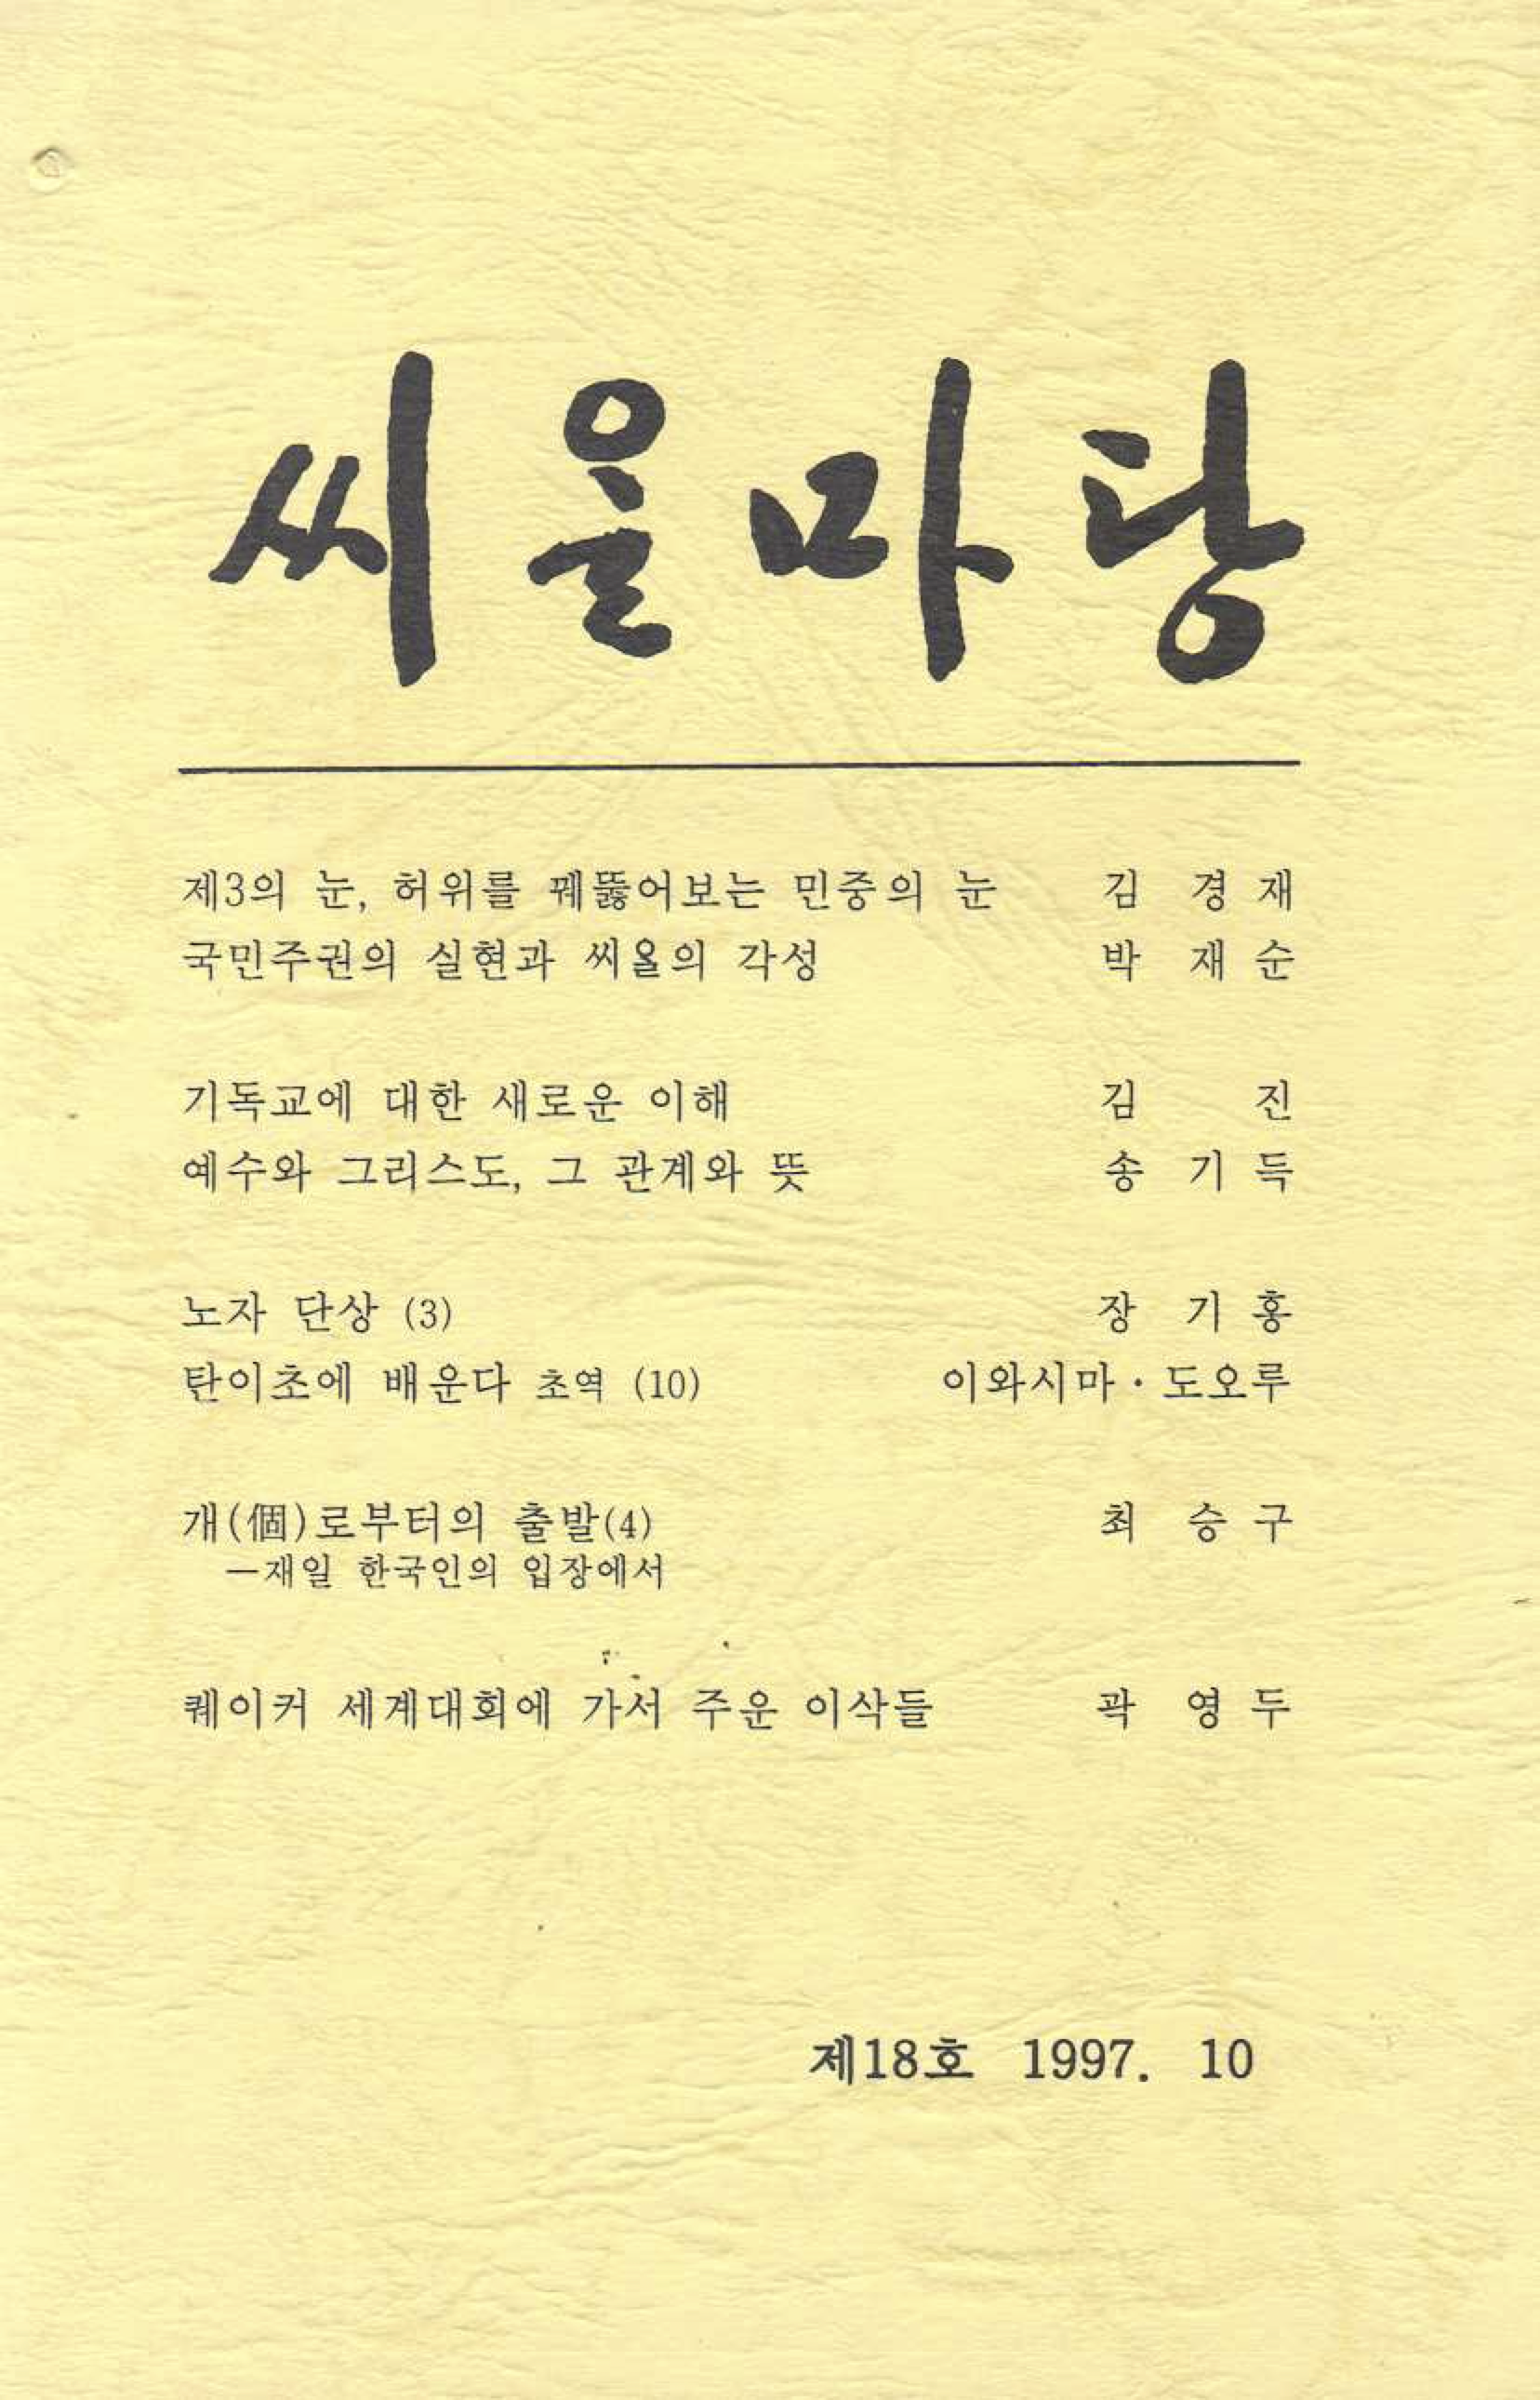 씨ᄋᆞᆯ마당
제3의 눈, 허위를 꿰뚫어보는 민중의 눈 김 경 재
국민주권의 실현과 씨ᄋᆞᆯ의 각성 박 재 순
기독교에 대한 새로운 이해 김 진
예수와 그리스도, 그 관계와 뜻 송 기 득
노자 단상 (3) 장 기 홍
탄이초에 배운다 초역 (10) 이와시마·도오루
개(個)로부터의 출발(4) 최 승 구
—재일 한국인의 입장에서
퀘이커 세계대회에 가서 주운 이삭들 곽 영 두
제18호 1997. 10